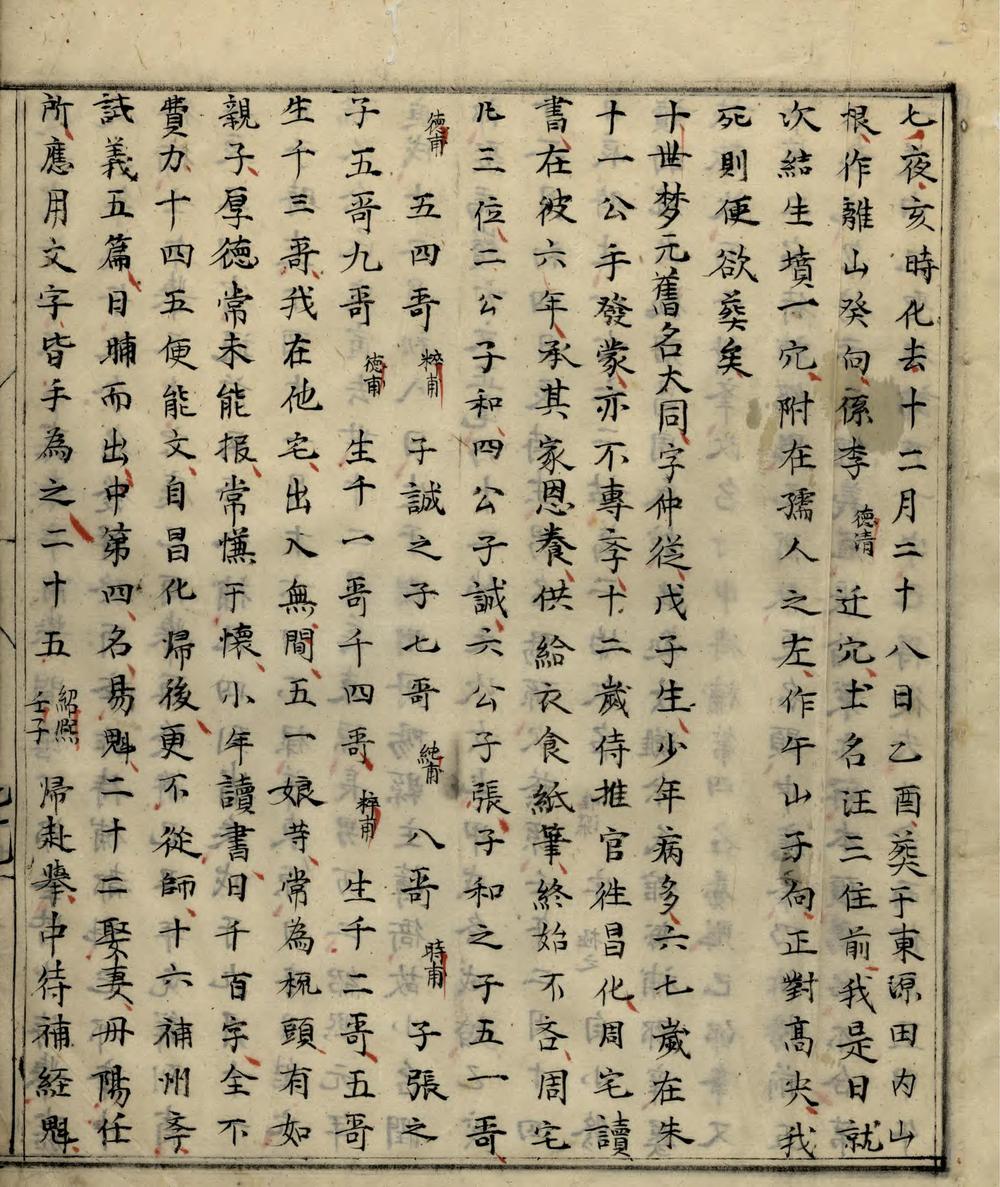 七夜亥時化去十二月二十八日乙酉葵于東源田内山
根作離山癸向係李德清迁穴土名汪三住前我是日就
次結生墳一穴附在孺人之左作午山子向正對高尖我
死則便欲葵矣
十世梦元舊名太同字仲從戊子生少年病多六七嵗在朱
十一公手發蒙亦不專李十二嵗侍推官徃昌化周宅讀
書在彼六年承其家恩養供給衣食紙筆終始不吝周宅
凡三位二公子和四公子誠六公子張子和之子五一哥
德甫五四哥粹甫子誠之子七哥純甫八哥時甫子張之
子五哥九哥德甫生千一哥千四哥粹甫生千二哥五哥
生千三哥我在他宅出入無間五一娘䒭常為梳頭有如
親子厚德常未能报常慊于懷小年讀書日千百字全不
費力十四五便能文自昌化帰後更不從師十六補州斈
試義五篇日晡而出中第四名易魁二十二娶妻丹陽任
所應用文字皆手為之二十五紹熙壬子帰赴舉中待補経魁